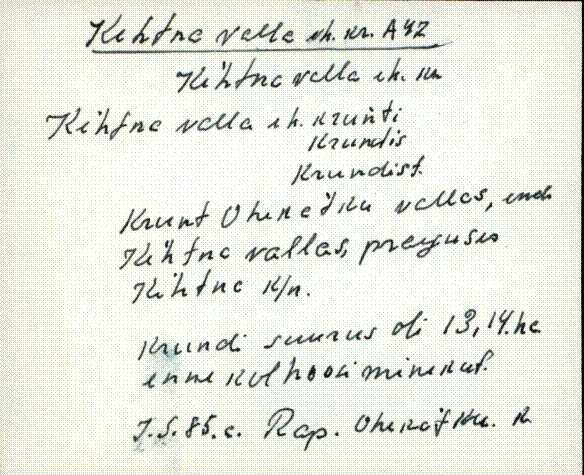 Kehtna valla eh. kr. AYZ
Kehtna valla eh. kr
Kehtna valla eh. krunti
Krundis
Krundist.
Krunt Ohekatku vallas, end.
Kehtna vallas, praeguses
Kehtna k/n.
Krundi suurus oli 13,14. ha
enne kolhoosi minekut.
J.S. 85.a. Rap. Ohekatku. k